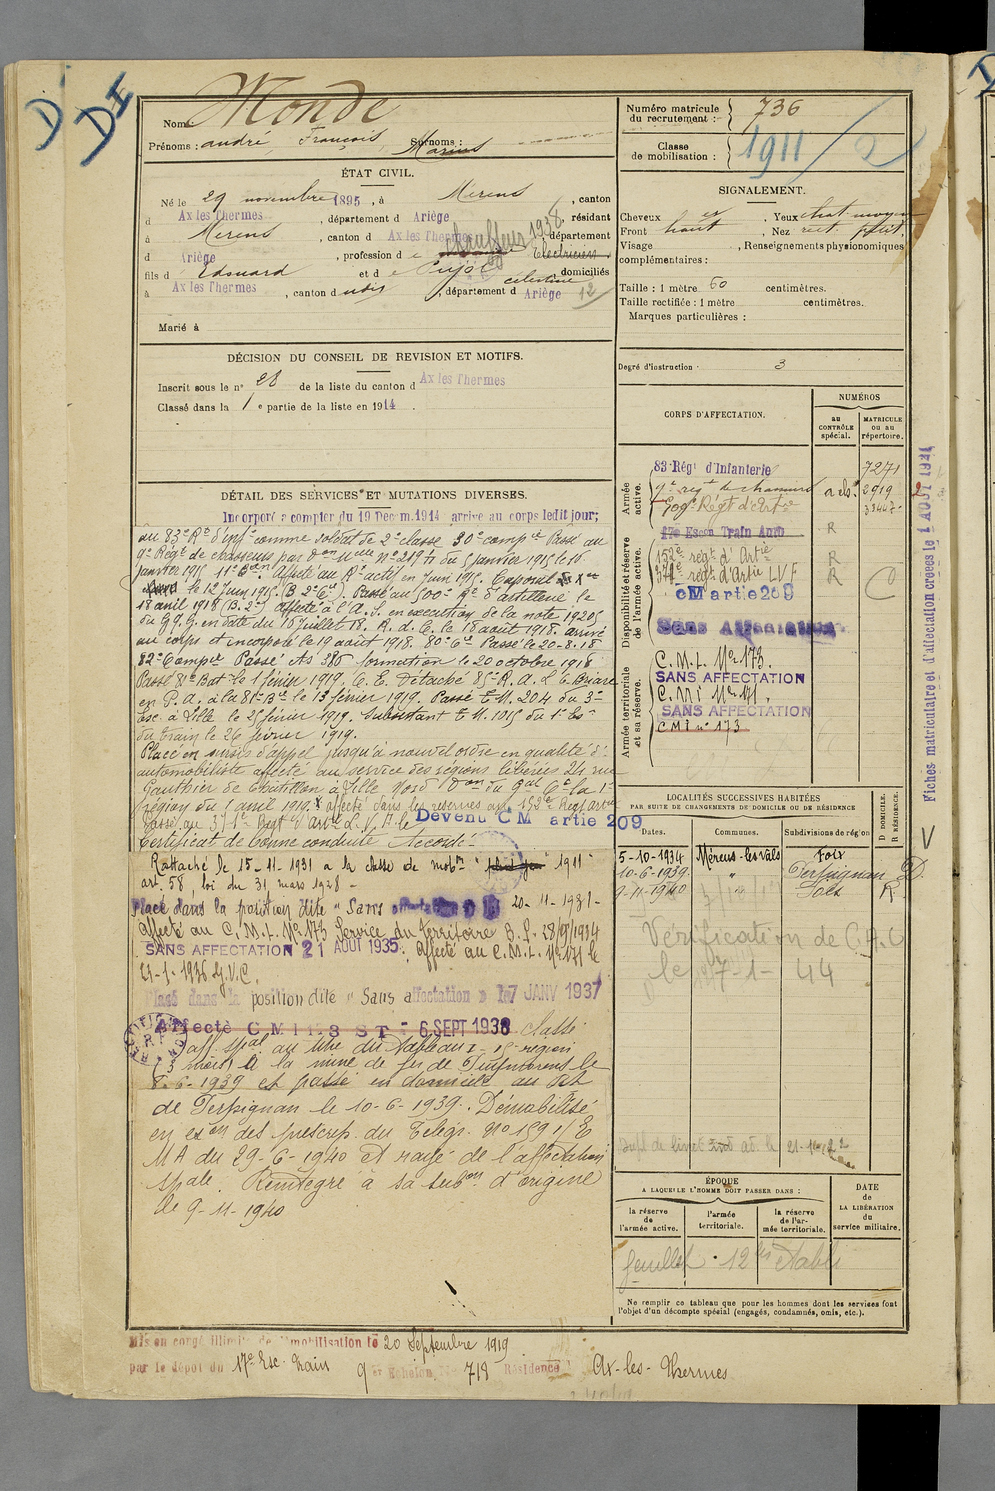 D DI
Nom : Monde
Prénoms : André François Marius Surnoms :
Numéro matricule du recrutement : 736
Classe de mobilisation : 1911
ÉTAT CIVIL.
Né le 29 novembre 1895, à Merens, canton
d Ax les Thermes, département d Ariège, résidant
à Merens, canton d Ax les Thermes, département
d Ariège, profession d e chauffeur 1938 Electricien
fils d Edouard et d e Pujol célestine, domiciliés
à Ax les Thermes, canton d udis, département d Ariège 12
Marié à
SIGNALEMENT.
Cheveux , Yeux chat moyen
Front haut , Nez rect.
Visage , Renseignements physionomiques
complémentaires :
Taille : 1 mètre 60 centimètres.
Taille rectifiée : 1 mètre centimètres.
Marques particulières :
Degré d'instruction : 3
DÉCISION DU CONSEIL DE REVISION ET MOTIFS.
Inscrit sous le n° 28 de la liste du canton d Ax les Thermes
Classé dans la 1 e partie de la liste en 1914.
DÉTAIL DES SERVICES ET MUTATIONS DIVERSES.
Incorporé à compter du 19 Décem. 1914 arrivé au corps ledit jour;
au 83e Rt d'Inf. comme soldat de 2e classe 30e compie Passé au
9e Régt de chasseurs par don Mlle n° 219 du 5 janvier 1915 le 16
janvier 1915 11e Affecté au Rt actif en Juin 1915. Caporal
le 12 Juin 1915. Passé au 500e Rt d'artillerie le
18 avril 1918 (B. 2e) affecté à l'A. S. en exécution de la note 19205
du G.Q.G. en date du 16 Juillet 18. R. d. C. le 18 août 1918. arrivé
au corps et incorporé le 19 août 1918. 80e Cie Passé le 20-8-18
82e Compie Passé AS 386 formation le 20 octobre 1918
Passé 81e Bat. le 1 février 1919. C. E. Détaché 85e R. A. L. à Briare
en P. A. à la 81e Bie le 13 février 1919. Passé T.M. 204 du 3e
Esc. à Lille le 25 février 1919. Subsistant T.M. 1015 du 1er Esc.
du train le 26 février 1919.
Placé en sursis d'appel jusqu'à nouvel ordre en qualité d'
automobiliste affecté au service des régions libérées 24 rue
Gauthier de Chatillon à Lille Nord Don du Gal Ct la 1e
région du 1 avril 1919. affecté dans les réserves au 152e Régt artie
Passé au 371e Régt d'artie L. V. F. le Devenu CM artie 209
Certificat de bonne conduite Accordé
Rattaché le 15-11-1931 à la classe de mobon 1911
art. 58, loi du 31 mars 1928 -
Placé dans la position dite "Sans affectation" 20-11-1931 -
Affecté au C. M. I. N° 173 Service du territoire B. P. 28/9/1934
SANS AFFECTATION 21 AOUT 1935. Affecté au C.M.I. N° 171 le
21-1-1936 G.V.C.
Placé dans la position dite "Sans affectation" le 7 JANV 1937
Affecté C M I 173 S T - 6 SEPT 1938 classé
aff. spal au titre du tableau I - 15e région
(3 mois) à la mine de fer de Puymorens le
8-6-1939 et passé en domicile au Bt
de Perpignan le 10-6-1939. Démobilisé
en exon des prescrip. du Telegr. N° 1591/E
MA du 29-6-1940 et rayé de l'affectation
spale. Réintégré à sa subon d'origine
le 9-11-1940
Mis en congé illimité de démobilisation le 20 Septembre 1919
par le dépôt du 17e Esc. train 9er Echelon 718 Résidence Ax-les-Thermes
CORPS D'AFFECTATION.
NUMÉROS
au CONTRÔLE spécial.
MATRICULE ou au répertoire.
Armée active.
83e Régt d'Infanterie 7271
9e régt de chasseurs 2919
500e Régt d'Artie 33447
Disponibilité et réserve de l'armée active.
17e Escon Train Auto R
152e régt d'Artie R
371e régt d'Artie LVF R
CM artie 209
Sans Affectation
Armée territoriale et sa réserve.
C. M. I. N° 173.
SANS AFFECTATION
C. M I N° 171.
SANS AFFECTATION
CMI n° 173
Fiches matriculaire et d'affectation créées le 1 AOUT 1934
LOCALITÉS SUCCESSIVES HABITÉES
PAR SUITE DE CHANGEMENTS DE DOMICILE OU DE RÉSIDENCE
Dates. Communes. Subdivisions de région D DOMICILE. R RÉSIDENCE.
5-10-1934 Mérens-les-vals Foix
10-6-1939. " Perpignan D.
9-11-1940 " Foix R
Vérification de C.A.O
le 17-1-44
ÉPOQUE
A LAQUELLE L'HOMME DOIT PASSER DANS :
la réserve de l'armée active.
l'armée territoriale.
la réserve de l'armée territoriale.
DATE de LA LIBÉRATION du service militaire.
feuillet 12 établi
Ne remplir ce tableau que pour les hommes dont les services font
l'objet d'un décompte spécial (engagés, condamnés, omis, etc.).